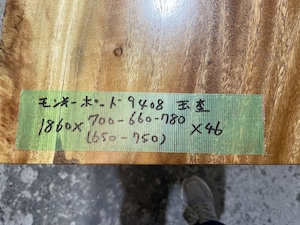 モンキーポット 9408 玉杢
1860×700-660-780×46
(650-750)